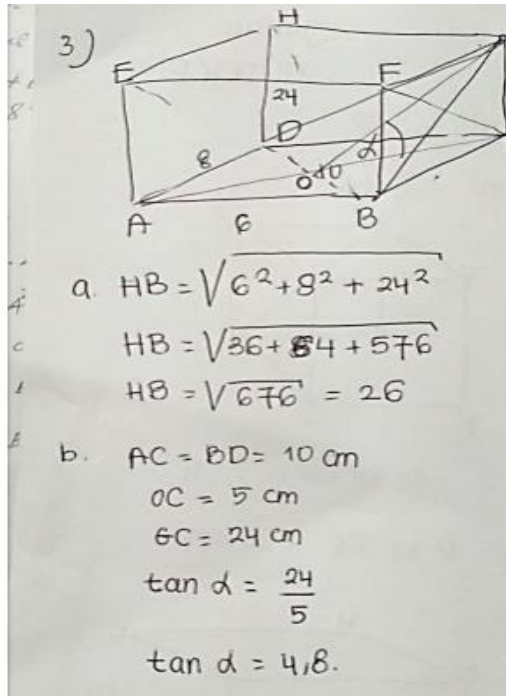 3)
H
E
F
24
D
8
α
O
10
A
6
B
a. HB = √6² + 8² + 24²
HB = √36 + 64 + 576
HB = √676 = 26
b. AC = BD = 10 cm
OC = 5 cm
GC = 24 cm
tan α = 24/5
tan α = 4,8.